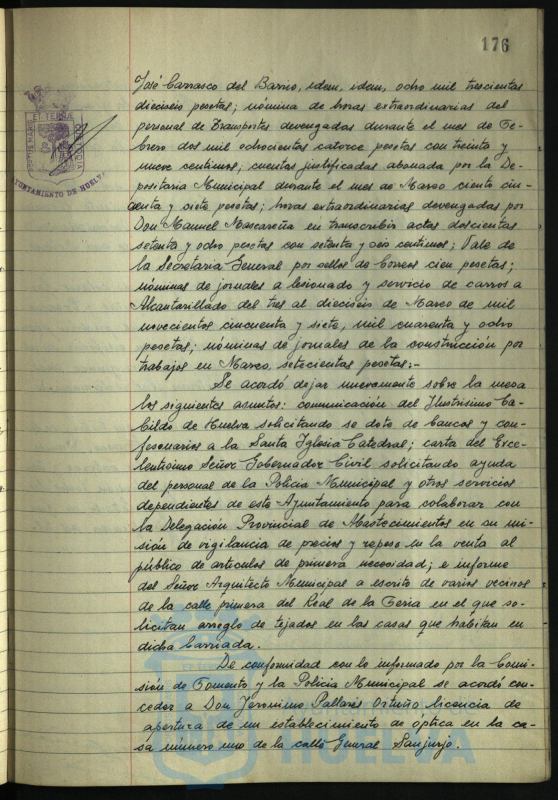 176
José Carrasco del Barrio, idem, idem, ocho mil trescientas
dieciseis pesetas; nómina de horas extraordinarias del
personal de Transportes devengadas durante el mes de Fe-
brero dos mil ochocientas catorce pesetas con treinta y
nueve centimos; cuentas justificadas abonada por la De-
positaria Municipal durante el mes de Marzo ciento cin-
cuenta y siete pesetas; horas extraordinarias devengadas por
Don Manuel Mascareña en transcribir actas doscientas
setenta y ocho pesetas con setenta y seis centimos; Vale de
la Secretaria General por sellos de Correos cien pesetas;
nóminas de jornales a lesionado y servicio de carros a
Alcantarillado del tres al dieciseis de Marzo de mil
novecientos cincuenta y siete, mil cuarenta y ocho
pesetas; nóminas de jornales de la construcción por
trabajos en Marzo, setecientas pesetas:-
Se acordó dejar nuevamente sobre la mesa
los siguientes asuntos: comunicación del Ilustrisimo Ca-
bildo de Huelva solicitando se dote de bancos y con-
fesonarios a la Santa Iglesia Catedral; carta del Exce-
lentisimo Señor Gobernador Civil solicitando ayuda
del personal de la Policia Municipal y otros servicios
dependientes de este Ayuntamiento para colaborar con
la Delegación Provincial de Abastecimientos en su mi-
sión de vigilancia de precios y repeso en la venta al
público de articulos de primera necesidad; e informe
del Señor Arquitecto Municipal a escrito de varios vecinos
de la calle primera del Real de la Feria en el que so-
licitan arreglo de tejados en las casas que habitan en
dicha barriada.
De conformidad con lo informado por la Comi-
sión de Fomento y la Policia Municipal se acordó con-
ceder a Don Jeronimo Pallarés Ortuño licencia de
apertura de un establecimiento de óptica en la ca-
sa número uno de la calle General Sanjurjo.
AYUNTAMIENTO DE HUELVA
HUELVA